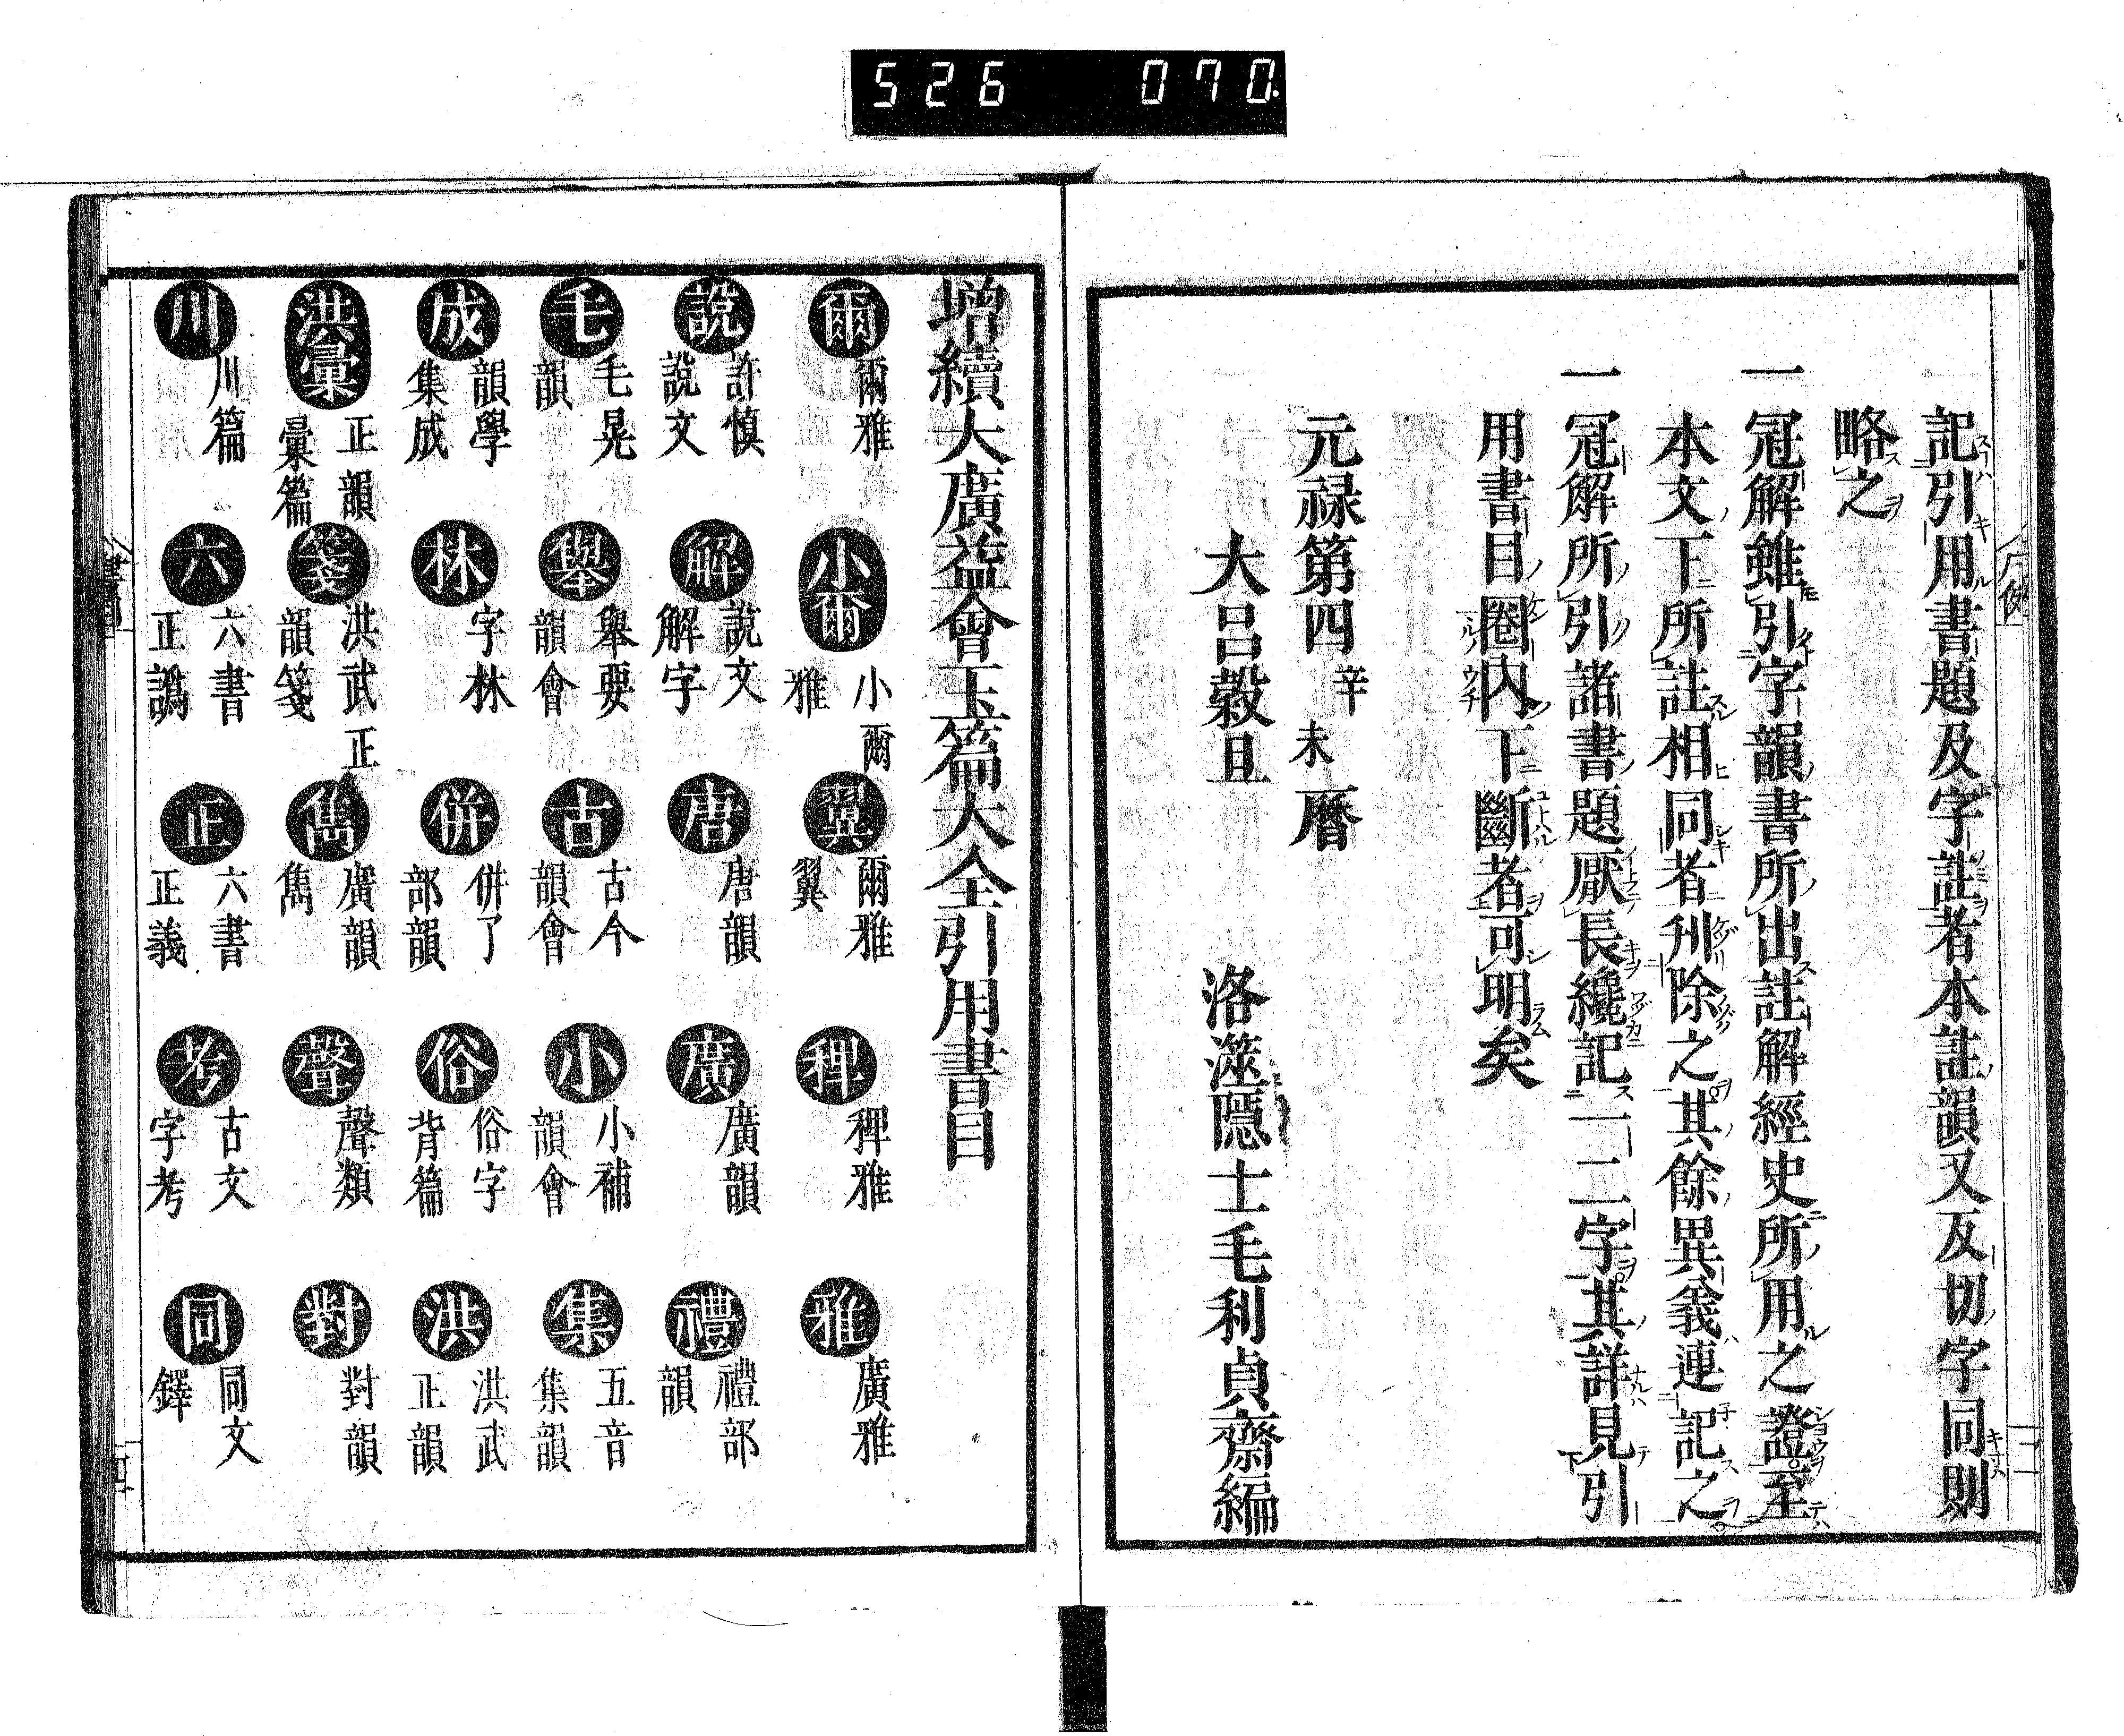 526 070.
記引用書題及字註者本註韻又反切字同則
略之
一冠解雖引字韻書所出註解經史所用之證至
本文下所註相同者刋除之其餘異義連記之
一冠解所引諸書題厭長纔記一二字其詳見引
用書目圈内下斷者可明矣
元禄第四辛未曆
大呂穀旦 洛澨隱士毛利貞齋編
増續大廣益會玉篇大全引用書目
爾 爾雅 小爾 小爾雅 翼 爾雅翼 稗 稗雅 雅 廣雅
說 許慎說文 解 說文解字 唐 唐韻 廣 廣韻 禮 禮部韻
毛 毛晃韻 舉 舉要韻會 古 古今韻會 小 小補韻會 集 五音集韻
成 韻學集成 林 字林 併 併了部韻 俗 俗字背篇 洪 洪武正韻
洪彙 正韻彙篇 箋 洪武正韻箋 雋 廣韻雋 聲 聲類 對 對韻
川 川篇 六 六書正譌 正 六書正義 考 古文字考 同 同文鐸